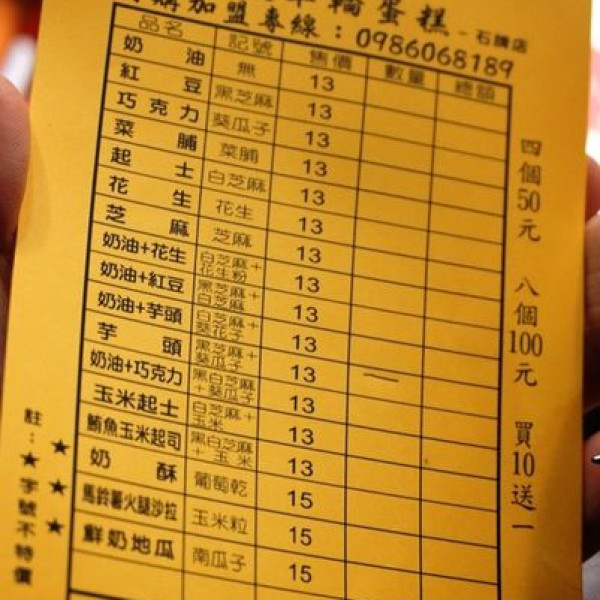 車輪蛋糕 - 石牌店
購加盟專線：0986068189
品名 記號 售價 數量 總額
奶油 無 13
紅豆 黑芝麻 13
巧克力 葵瓜子 13
菜脯 菜脯 13
起士 白芝麻 13
花生 花生 13
芝麻 芝麻 13
奶油+花生 白芝麻+花生粉 13
奶油+紅豆 黑芝麻+白芝麻 13
奶油+芋頭 白芝麻+葵花子 13
芋頭 黑芝麻+葵瓜子 13 —
奶油+巧克力 黑白芝麻+葵瓜子 13
玉米起士 白芝麻+玉米 13
鮪魚玉米起司 黑白芝麻+玉米 13
奶酥 葡萄乾 15
★ 馬鈴薯火腿沙拉 玉米粒 15
★ 鮮奶地瓜 南瓜子 15
四個50元 八個100元 買10送一
註：★字號不特價